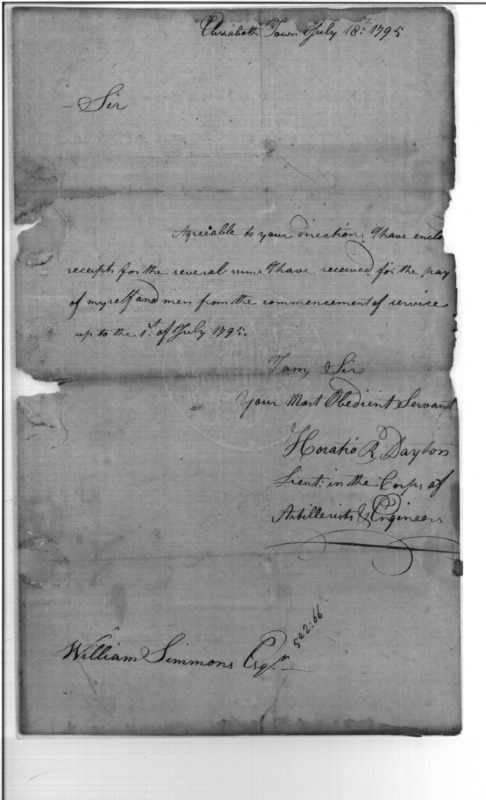 Elizabeth Town July 18.t 1795
Sir
Agreeable to your directions I have enclo
receipts for the several sums I have received for the pay
of myself and men from the commencement of service
up to the 1.st of July 1795.
I am, Sir
Your Most Obedient Servant
Horatio R. Dayton
Lieut: in the Corps of
Artillerists & Engineers
592:66
William Simmons Esqr.